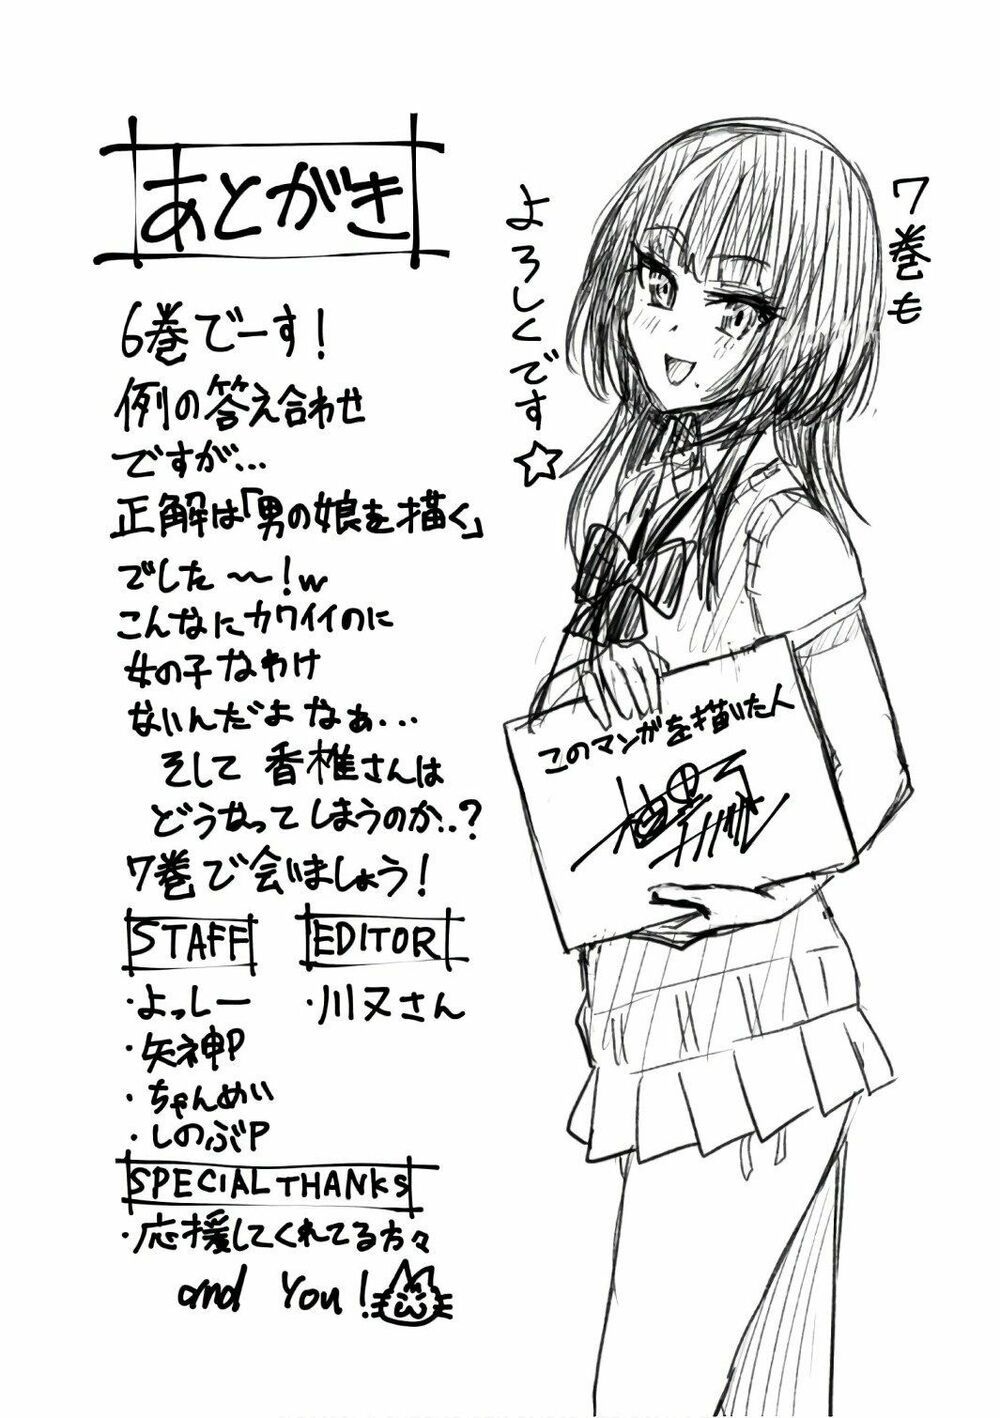 あとがき
6巻でーす!
例の答え合わせ
ですが…
正解は「男の娘を描く」
でした〜!w
こんなにカワイイのに
女の子なわけ
ないんだよなぁ...
そして香椎さんは
どうなってしまうのか..?
7巻で会いましょう!
STAFF
・よっしー
・矢神P
・ちゃんめい
・しのぶP
EDITOR
・川又さん
SPECIAL THANKS
・応援してくれてる方々
and You!
7巻も
よろしくです☆
このマンガを描いた人